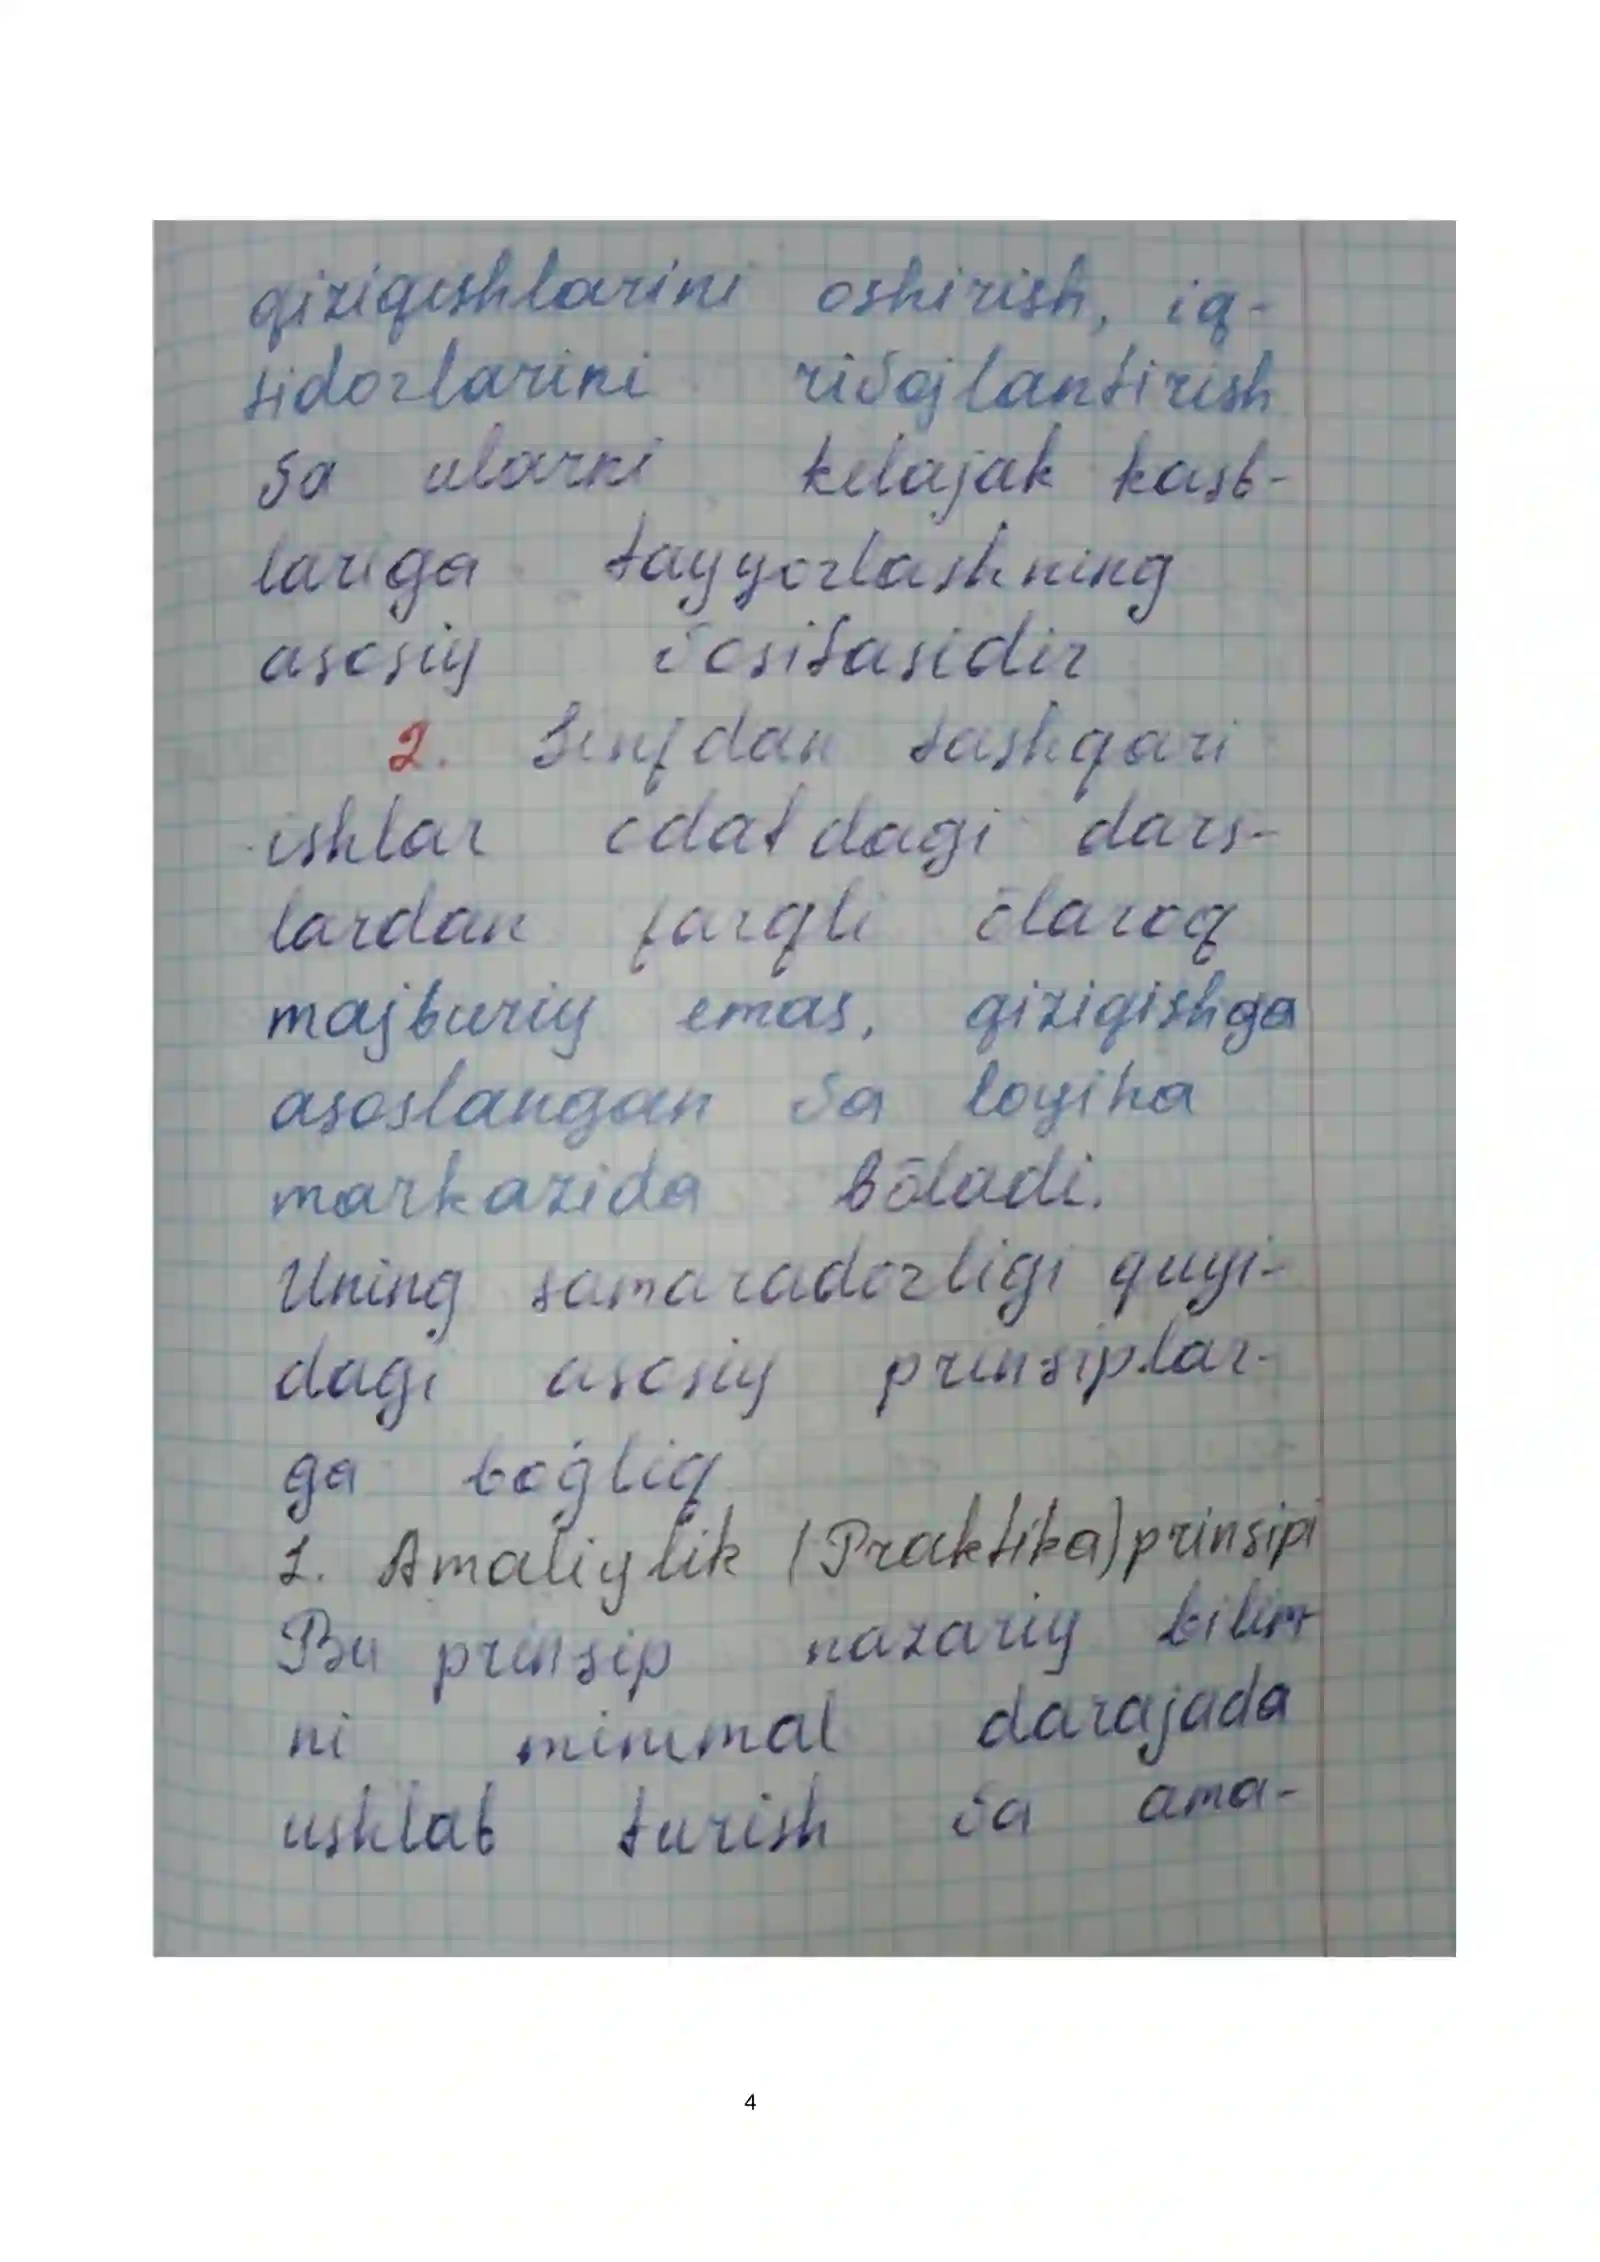 qiziqishlarini oshirish, iq-
tidorlarini rivojlantirish
va ularni kelajak kasb-
lariga tayyorlashning
asosiy vositasidir
2. Sinfdan tashqari
ishlar odatdagi dars-
lardan farqli ōlaroq
majburiy emas, qiziqishga
asoslangan va loyiha
markazida bōladi.
Uning samaradorligi quyi-
dagi asosiy prinsiplar-
ga boǵliq
1. Amaliylik (Praktika) prinsipi
Bu prinsip nazariy bilim-
ni minimal darajada
ushlab turish va ama-
4